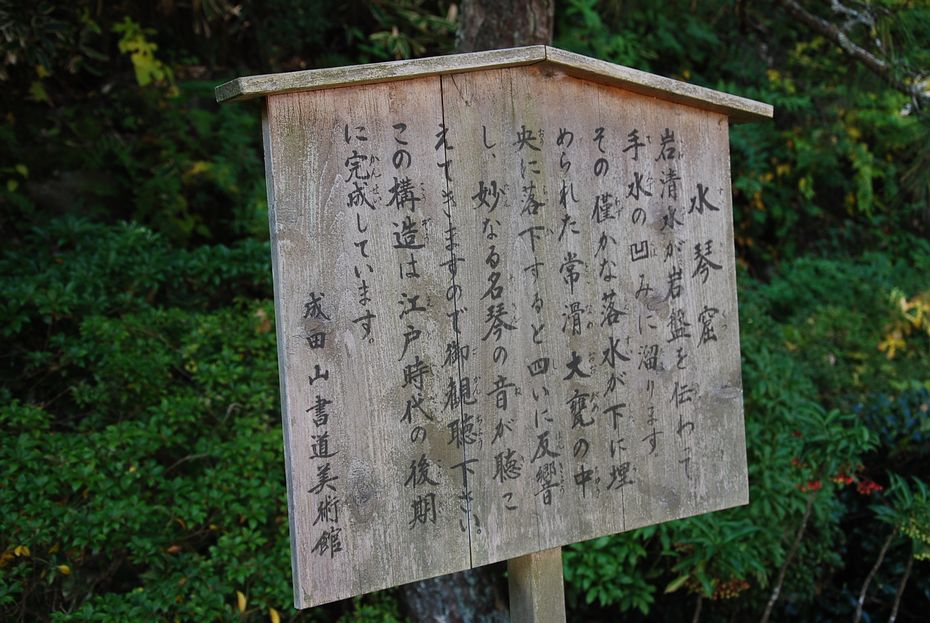 水琴窟
岩清水が岩盤を伝わって
手水の凹みに溜ります
その僅かな落水が下に埋
められた常滑大甕の中
央に落下すると四いに反響
し、妙なる名琴の音が聴こ
えてきますので御観聴下さい。
この構造は江戸時代の後期
に完成しています。
成田山書道美術館